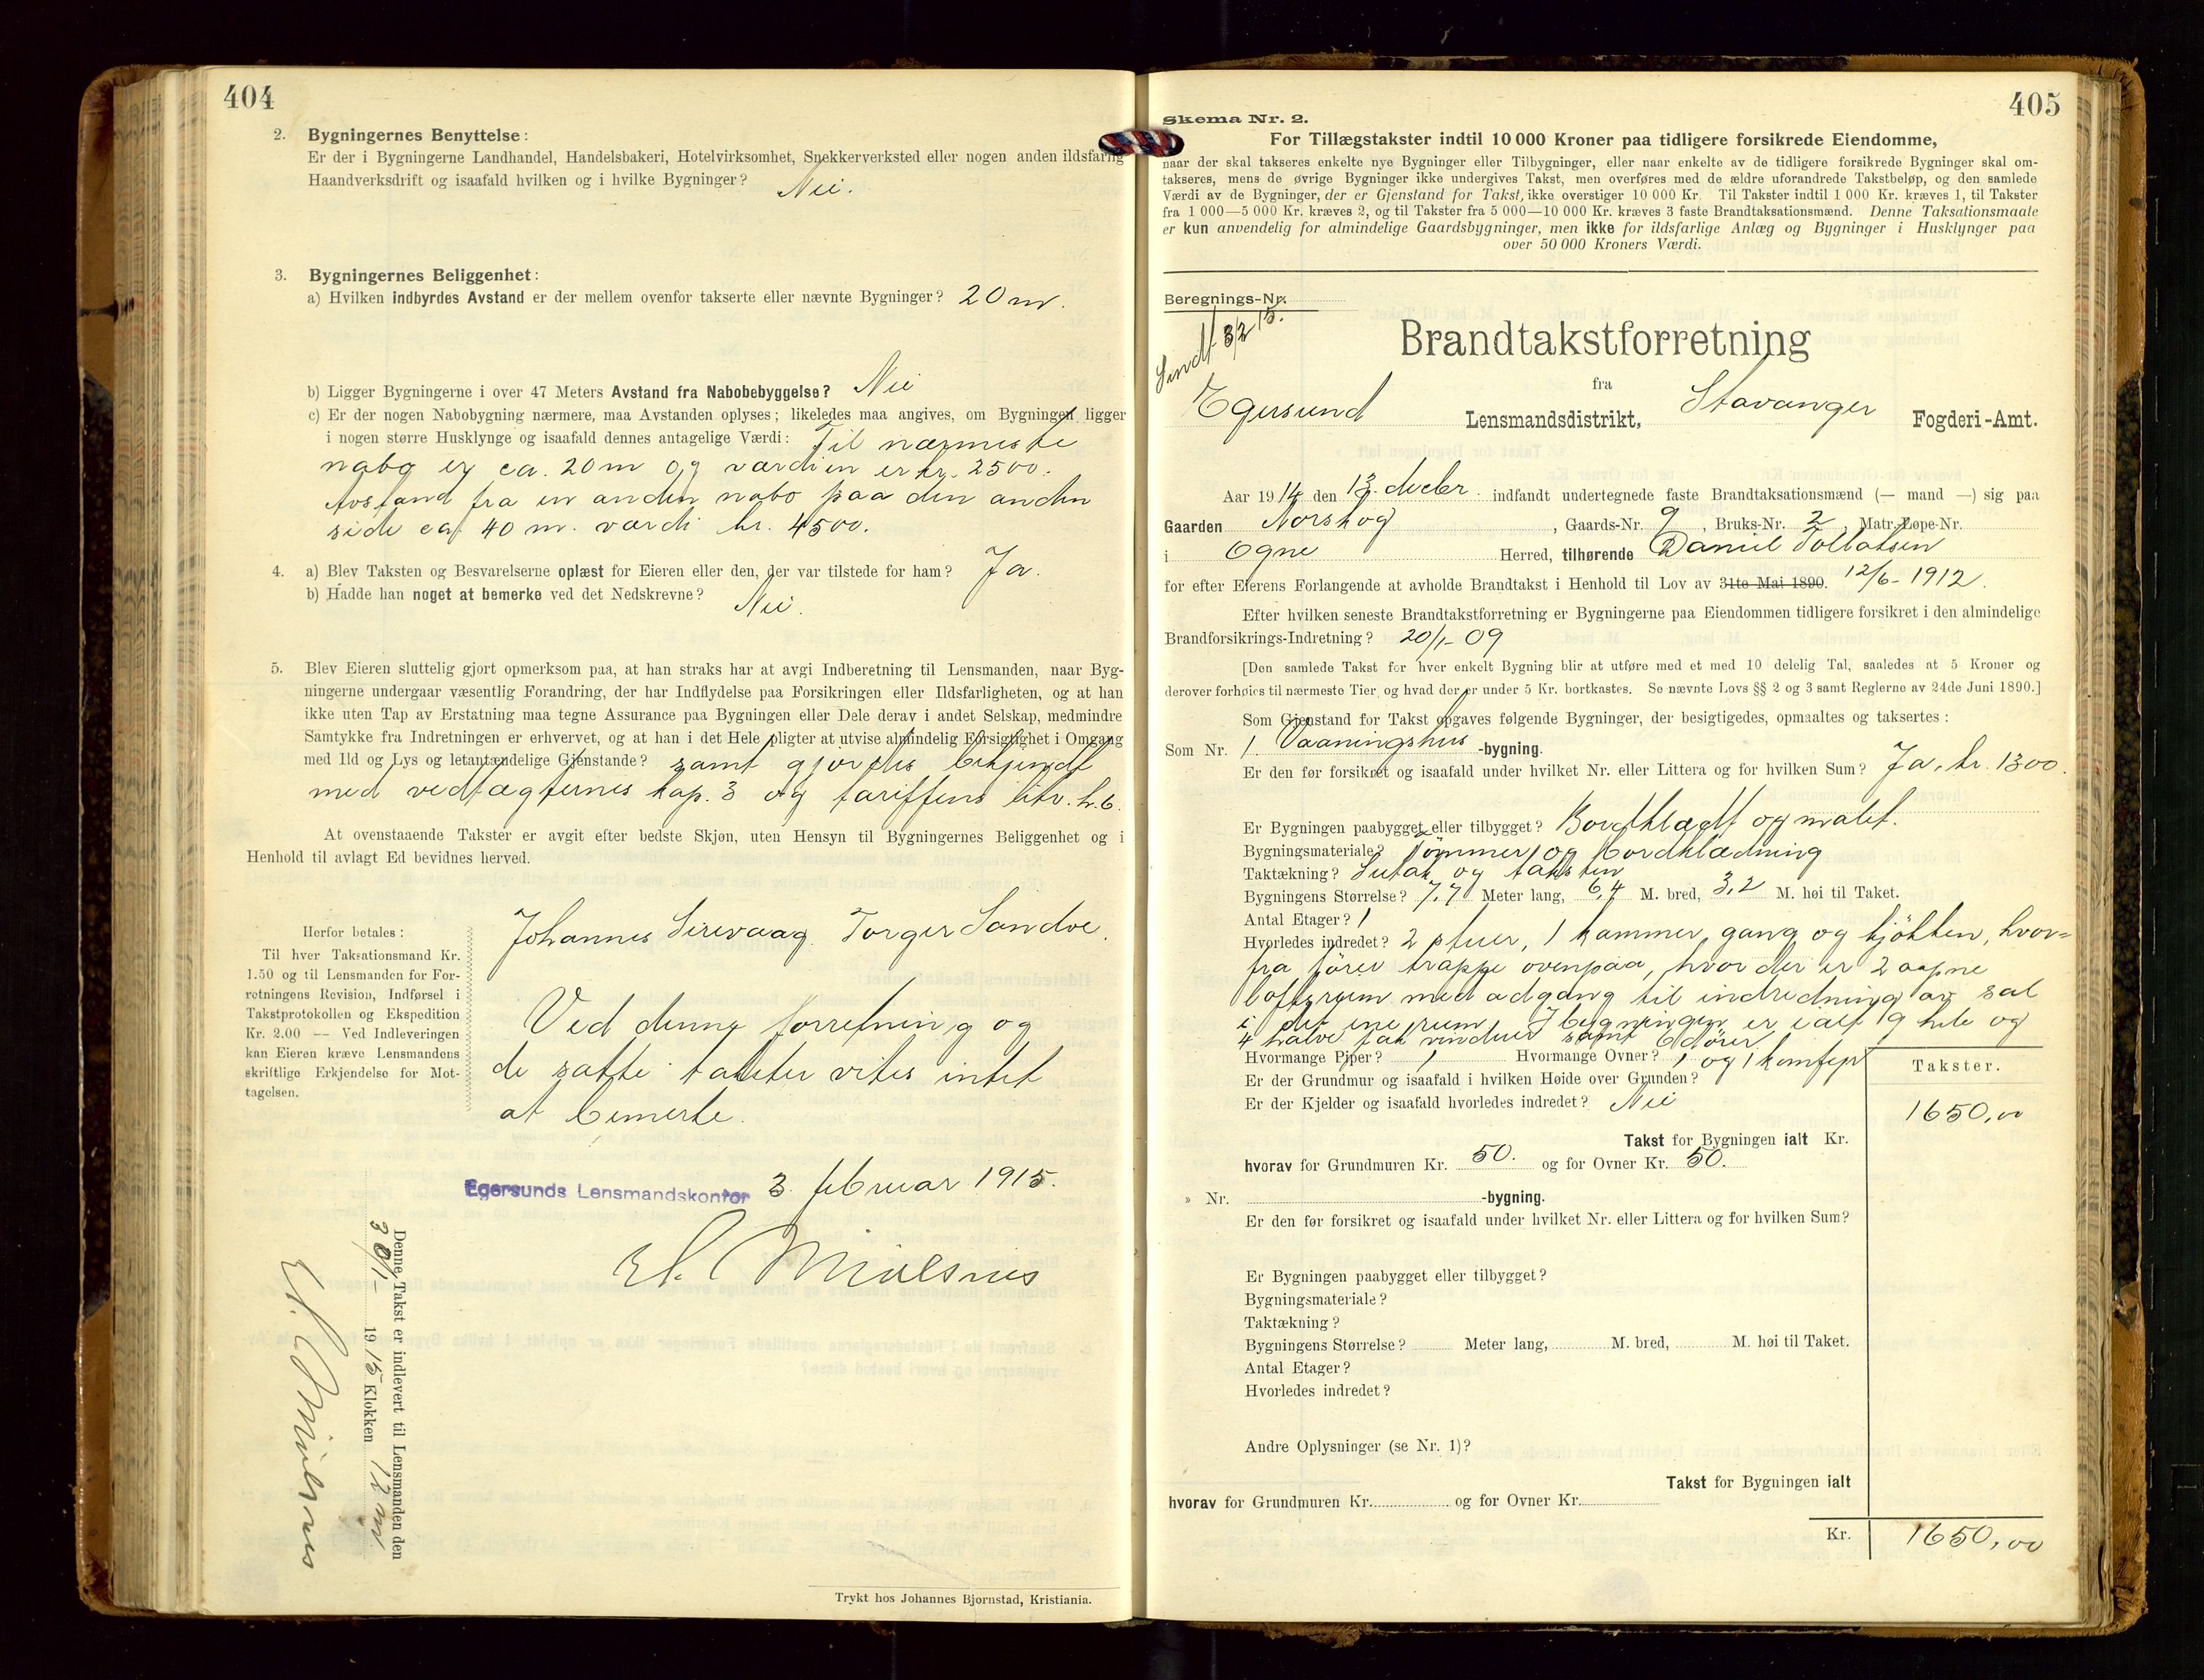 404
2. Bygningernes Benyttelse:
Er der i Bygningerne Landhandel, Handelsbakeri, Hotelvirksomhet, Snekkerverksted eller nogen anden ildsfarlig
Haandverksdrift og isaafald hvilken og i hvilke Bygninger? Nei.
3. Bygningernes Beliggenhet:
a) Hvilken indbyrdes Avstand er der mellem ovenfor takserte eller nævnte Bygninger? 20 m.
b) Ligger Bygningerne i over 47 Meters Avstand fra Nabobebyggelse? Nei
c) Er der nogen Nabobygning nærmere, maa Avstanden oplyses; likeledes maa angives, om Bygningen ligger
i nogen større Husklynge og isaafald dennes antagelige Værdi: Til nærmeste
nabo er ca. 20 m og værdien er kr. 2500.
Avstand fra en anden nabo paa den anden
side ca 40 m. værdi kr. 4500.
4. a) Blev Taksten og Besvarelserne oplæst for Eieren eller den, der var tilstede for ham? Ja.
b) Hadde han noget at bemerke ved det Nedskrevne? Nei.
5. Blev Eieren sluttelig gjort opmerksom paa, at han straks har at avgi Indberetning til Lensmanden, naar Byg-
ningerne undergaar væsentlig Forandring, der har Indflydelse paa Forsikringen eller Ildsfarligheten, og at han
ikke uten Tap av Erstatning maa tegne Assurance paa Bygningen eller Dele derav i andet Selskap, medmindre
Samtykke fra Indretningen er erhvervet, og at han i det Hele pligter at utvise almindelig Forsigtighet i Omgang
med Ild og Lys og letantændelige Gjenstande? samt gjordes bekjendt
med vedtægternes kap. 3 og tariffens litr. h. 6.
At ovenstaaende Takster er avgit efter bedste Skjøn, uten Hensyn til Bygningernes Beliggenhet og i
Henhold til avlagt Ed bevidnes herved.
Johannes Sirevaag. Torger Sandve.
Herfor betales:
Til hver Taksationsmand Kr.
1.50 og til Lensmanden for For-
retningens Revision, Indførsel i
Takstprotokollen og Ekspedition
Kr. 2.00 — Ved Indleveringen
kan Eieren kræve Lensmandens
skriftlige Erkjendelse for Mot-
tagelsen.
Ved denne forretning og
de satte takster vites intet
at bemerke.
Egersunds Lensmandskontor 3 februar 1915.
Denne Takst er indlevert til Lensmanden den
30/1- 1915 Klokken 12 m
Trykt hos Johannes Bjørnstad, Kristiania.
405
Skema Nr. 2.
For Tillægstakster indtil 10 000 Kroner paa tidligere forsikrede Eiendomme,
naar der skal takseres enkelte nye Bygninger eller Tilbygninger, eller naar enkelte av de tidligere forsikrede Bygninger skal om-
takseres, mens de øvrige Bygninger ikke undergives Takst, men overføres med de ældre uforandrede Takstbeløp, og den samlede
Værdi av de Bygninger, der er Gjenstand for Takst, ikke overstiger 10 000 Kr. Til Takster indtil 1 000 Kr. kræves 1, til Takster
fra 1 000—5 000 Kr. kræves 2, og til Takster fra 5 000—10 000 Kr. kræves 3 faste Brandtaksationsmænd. Denne Taksationsmaate
er kun anvendelig for almindelige Gaardsbygninger, men ikke for ildsfarlige Anlæg og Bygninger i Husklynger paa
over 50 000 Kroners Værdi.
Beregnings-Nr.
Sendt 3/2 15.
Brandtakstforretning
fra
Egersund Lensmandsdistrikt, Stavanger Fogderi-Amt.
Aar 1914 den 13. decbr. indfandt undertegnede faste Brandtaksationsmænd (— mand —) sig paa
Gaarden Norskog, Gaards-Nr. 9, Bruks-Nr. 2, Matr. Løpe-Nr.
i Ogne Herred, tilhørende Daniel Tollaksen
for efter Eierens Forlangende at avholde Brandtakst i Henhold til Lov av 31te Mai 1890. 12/6-1912.
Efter hvilken seneste Brandtakstforretning er Bygningerne paa Eiendommen tidligere forsikret i den almindelige
Brandforsikrings-Indretning? 20/1-09
[Den samlede Takst for hver enkelt Bygning blir at utføre med et med 10 delelig Tal, saaledes at 5 Kroner og
derover forhøies til nærmeste Tier, og hvad der er under 5 Kr. bortkastes. Se nævnte Lovs §§ 2 og 3 samt Reglerne av 24de Juni 1890.]
Som Gjenstand for Takst opgaves følgende Bygninger, der besigtigedes, opmaaltes og taksertes:
Som Nr. 1. Vaaningshus -bygning.
Er den før forsikret og isaafald under hvilket Nr. eller Littera og for hvilken Sum? Ja, kr. 1300.
Er Bygningen paabygget eller tilbygget? Bordklædt og malet.
Bygningsmateriale? Tømmer og bordklædning
Taktækning? Sutak og taksten
Bygningens Størrelse? 7,7 Meter lang, 6,4 M. bred, 3,2 M. høi til Taket.
Antal Etager? 1
Hvorledes indredet? 2 stuer, 1 kammer, gang og kjøkken, hvor-
fra fører trappe ovenpaa, hvor der er 2 aapne
loftsrum med adgang til indredning av sal
i det ene rum. I bygningen er ialt 9 hele og
4 halve fak vinduer samt 6 dører
Hvormange Piper? 1 Hvormange Ovner? 1 og 1 komfyr
Er der Grundmur og isaafald i hvilken Høide over Grunden?
Er der Kjelder og isaafald hvorledes indredet? Nei
Takster.
1650,00
Takst for Bygningen ialt Kr.
hvorav for Grundmuren Kr. 50. og for Ovner Kr. 50.
» Nr. -bygning.
Er den før forsikret og isaafald under hvilket Nr. eller Littera og for hvilken Sum?
Er Bygningen paabygget eller tilbygget?
Bygningsmateriale?
Taktækning?
Bygningens Størrelse? Meter lang, M. bred, M. høi til Taket.
Antal Etager?
Hvorledes indredet?
Andre Oplysninger (se Nr. 1)?
Takst for Bygningen ialt
hvorav for Grundmuren Kr. og for Ovner Kr.
Kr. 1650,00